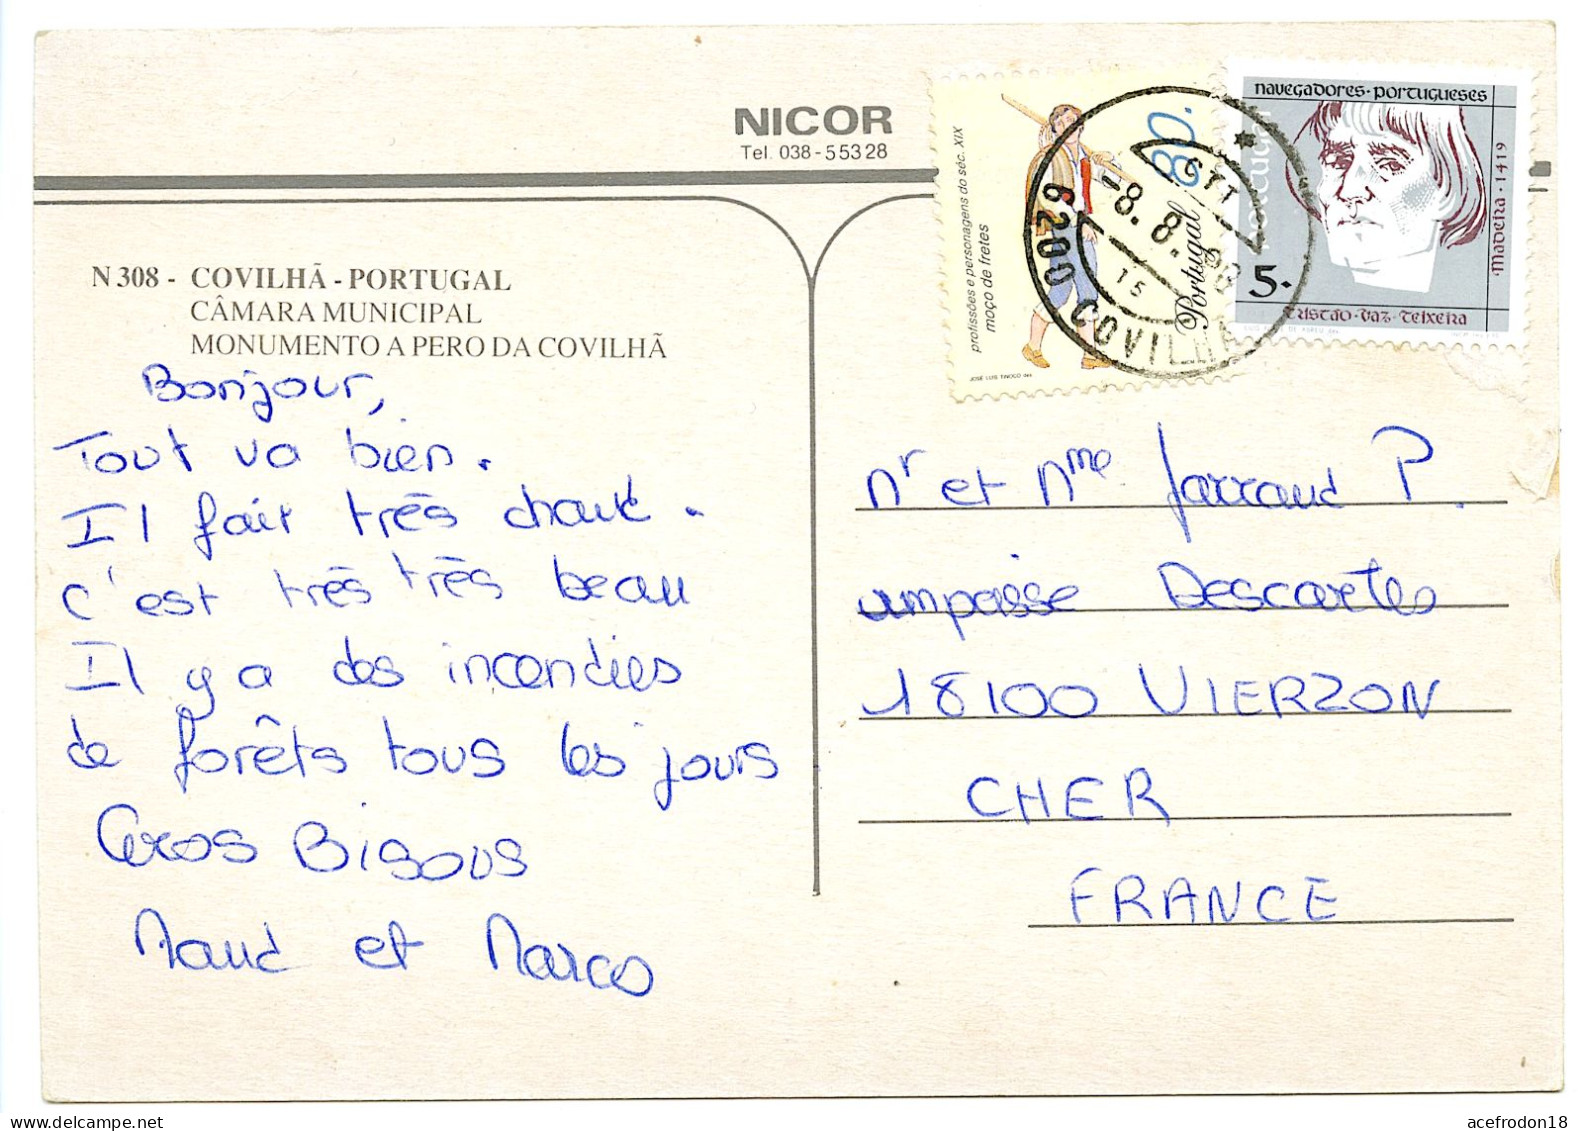 NICOR
Tel. 038-55328
N 308 - COVILHÃ - PORTUGAL
CÂMARA MUNICIPAL
MONUMENTO A PERO DA COVILHÃ
Bonjour,
Tout va bien.
Il fait très chaud.
C'est très très beau
Il y a des incendies
de forêts tous les jours
Gros Bisous
Maud et Marco
profissões e personagens do séc. XIX
moço de fretes
80.
Portugal
JOSÉ LUÍS TINOCO
CTT
-8. 8. 98
15
6200 COVILHÃ
navegadores · portugueses
Portugal
Madeira · 1419
5.
tristão · vaz · teixeira
Mr et Mme Jarraud P.
impasse Descartes
18100 VIERZON
CHER
FRANCE
acefrodon18